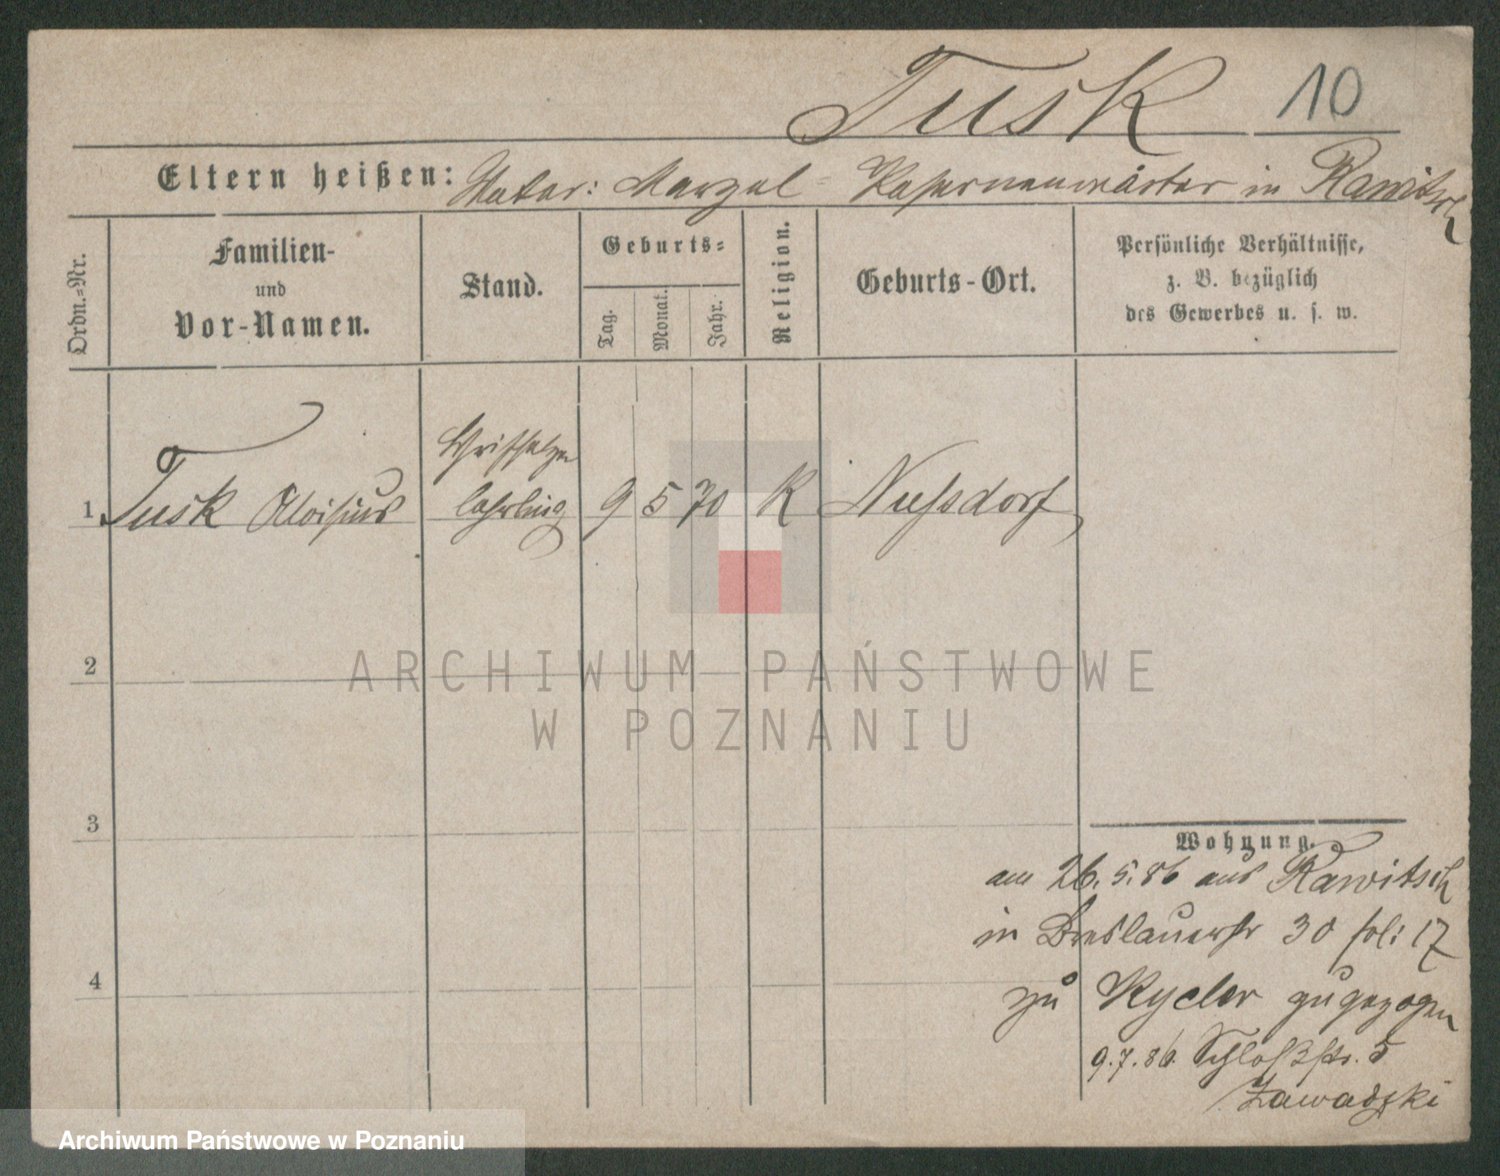 Tusk 10
Eltern heißen: Vater: Marzel - Kasernenwärter in Rawitsch
Ordn.-Nr.
Familien-
und
Vor-Namen.
Stand.
Geburts-
Tag.
Monat.
Jahr.
Religion.
Geburts-Ort.
Persönliche Verhältnisse,
z. B. bezüglich
des Gewerbes u. s. w.
Schriftsetzer
1 Tusk Aloisius lehrling 9 5 70 K Nußdorf
2
3
4
ARCHIWUM PAŃSTWOWE
W POZNANIU
Wohnung.
am 26.5.86 aus Rawitsch
in Breslauerstr 30 fol: 17
zu Rycler zugezogen
9.7.86. Schloßstr. 5
Zawadzki
Archiwum Państwowe w Poznaniu